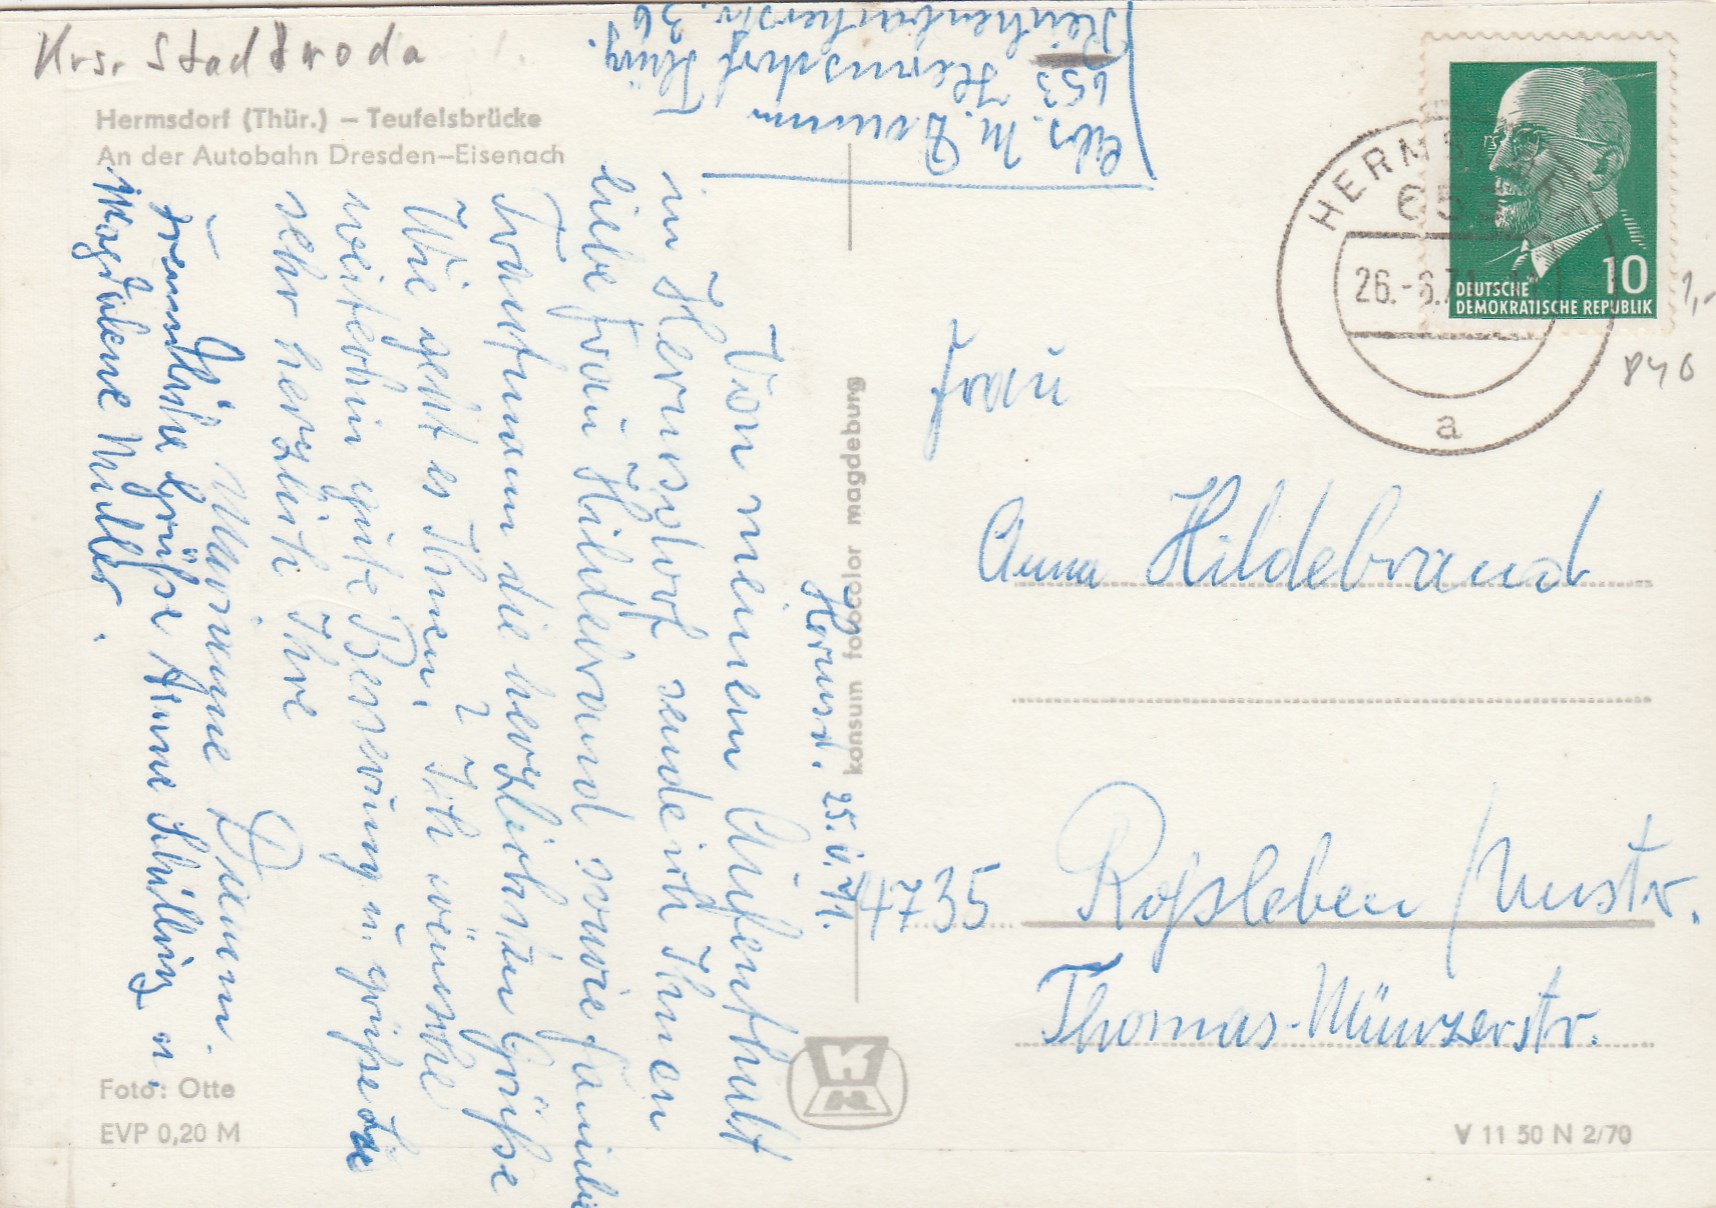 Krs. Stadtroda
Hermsdorf (Thür.) – Teufelsbrücke
An der Autobahn Dresden–Eisenach
Abs. M. Daumm
653 Hermsdorf Thür.
Reichenbacherstr. 36
HERMSDORF
653
26.-6.71
a
DEUTSCHE
DEMOKRATISCHE REPUBLIK
10
1,-
840
Hermsd. 25.6.71.
Von meinem Aufenthalt
in Hermsdorf sende ich Ihnen
liebe Frau Hildebrand sowie Familie
Trautmann die herzlichsten Grüße
Wie geht es Ihnen? Ich wünsche
weiterhin gute Besserung u. grüße Sie
sehr herzlich Ihre
Marianne Daumm.
Freundliche Grüße Anne Schilling u.
Magdalene Müller.
konsum fotocolor magdeburg
Frau
Anna Hildebrand
4735 Roßleben / Unstr.
Thomas-Münzerstr.
Foto: Otte
EVP 0,20 M
V 11 50 N 2/70